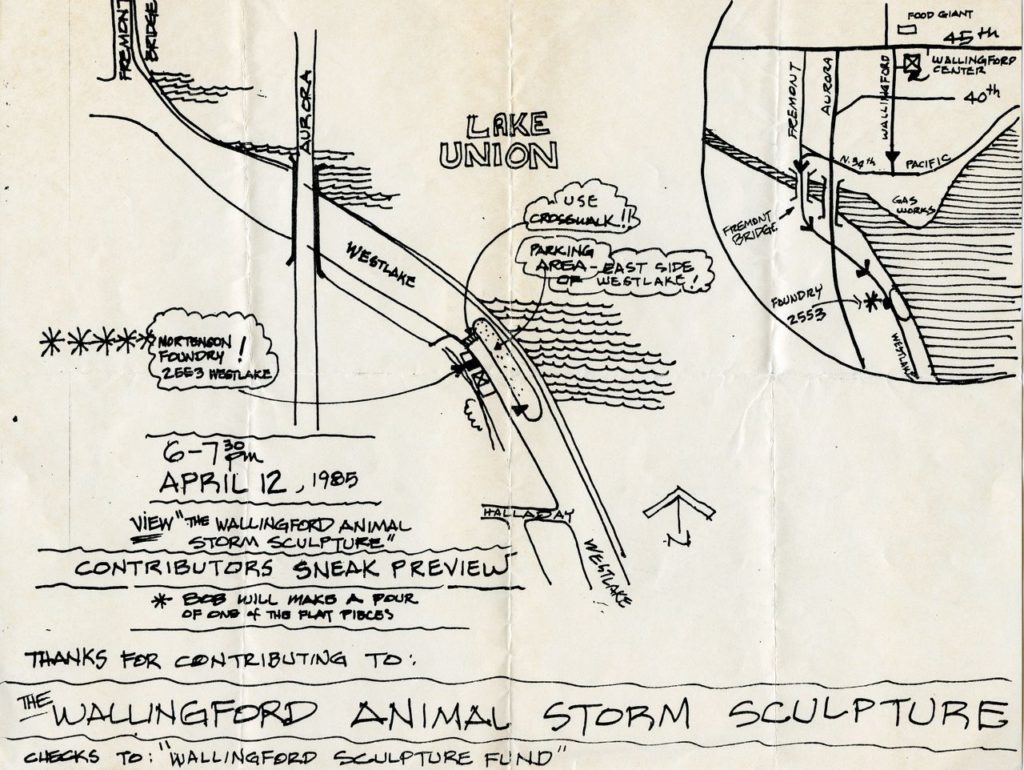 FREMONT
BRIDGE
AURORA
LAKE
UNION
WESTLAKE
USE
CROSSWALK!!
PARKING
AREA - EAST SIDE
OF WESTLAKE!
MORTENSON
FOUNDRY !
2553 WESTLAKE
FOOD GIANT
45th
WALLINGFORD
CENTER
FREMONT
AURORA
WALLINGFORD
40th
N. 34th
PACIFIC
GAS
WORKS
FREMONT
BRIDGE
FOUNDRY
2553
WESTLAKE
6-7 30 pm
APRIL 12, 1985
VIEW "THE WALLINGFORD ANIMAL
STORM SCULPTURE"
CONTRIBUTORS SNEAK PREVIEW
* BOB WILL MAKE A POUR
OF ONE of THE FLAT PIECES
HALLADAY
WESTLAKE
N
THANKS FOR CONTRIBUTING TO:
THE WALLINGFORD ANIMAL STORM SCULPTURE
CHECKS TO: "WALLINGFORD SCULPTURE FUND"